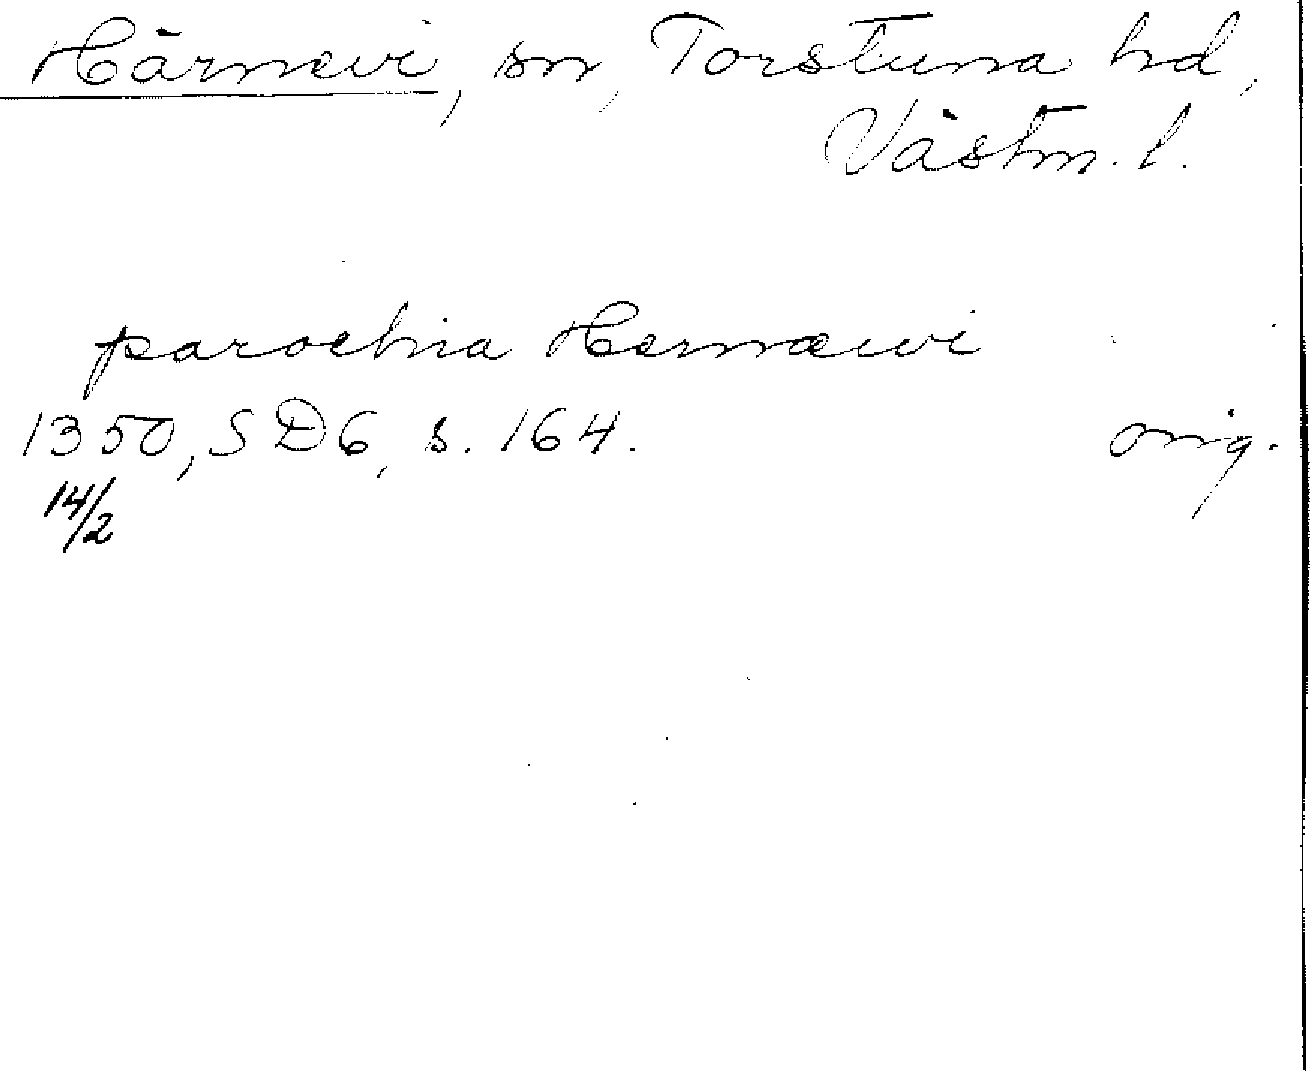 Härnevi, sn, Torstuna hd,
Västm. l.
parochia Hernæwi
1350, SD6, s. 164. orig.
14/2